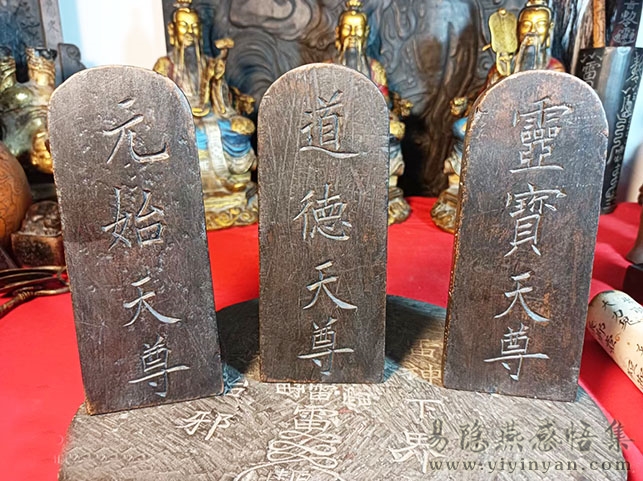 元始天尊
道德天尊
靈寶天尊
雷
邪
下界
易隐燕感悟集
www.yiyinyan.com